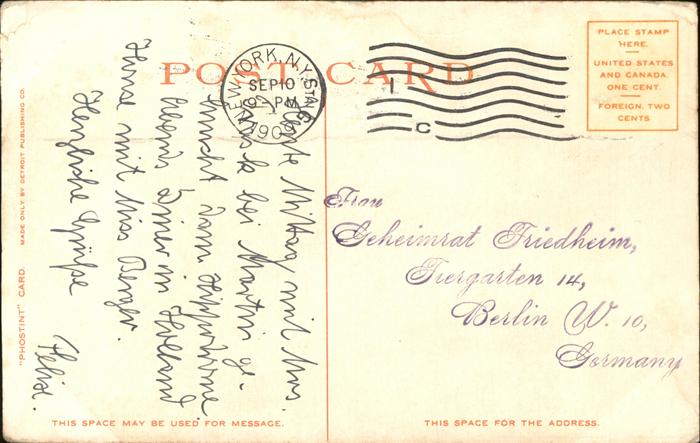 POST CARD
PLACE STAMP
HERE.
UNITED STATES
AND CANADA
ONE CENT.
FOREIGN, TWO
CENTS
NEW YORK, N.Y. STA.
SEP 10
9 PM
1906
C
Heute Mittag mit Mrs.
bei Martin ge-
dann Hippodrome
Abends Diner in Holland
House mit Miss Berger.
Herzliche Grüße
Felix.
Frau
Geheimrat Friedheim,
Tiergarten 14,
Berlin W. 10,
Germany
"PHOSTINT" CARD.
MADE ONLY BY DETROIT PUBLISHING CO.
THIS SPACE MAY BE USED FOR MESSAGE.
THIS SPACE FOR THE ADDRESS.